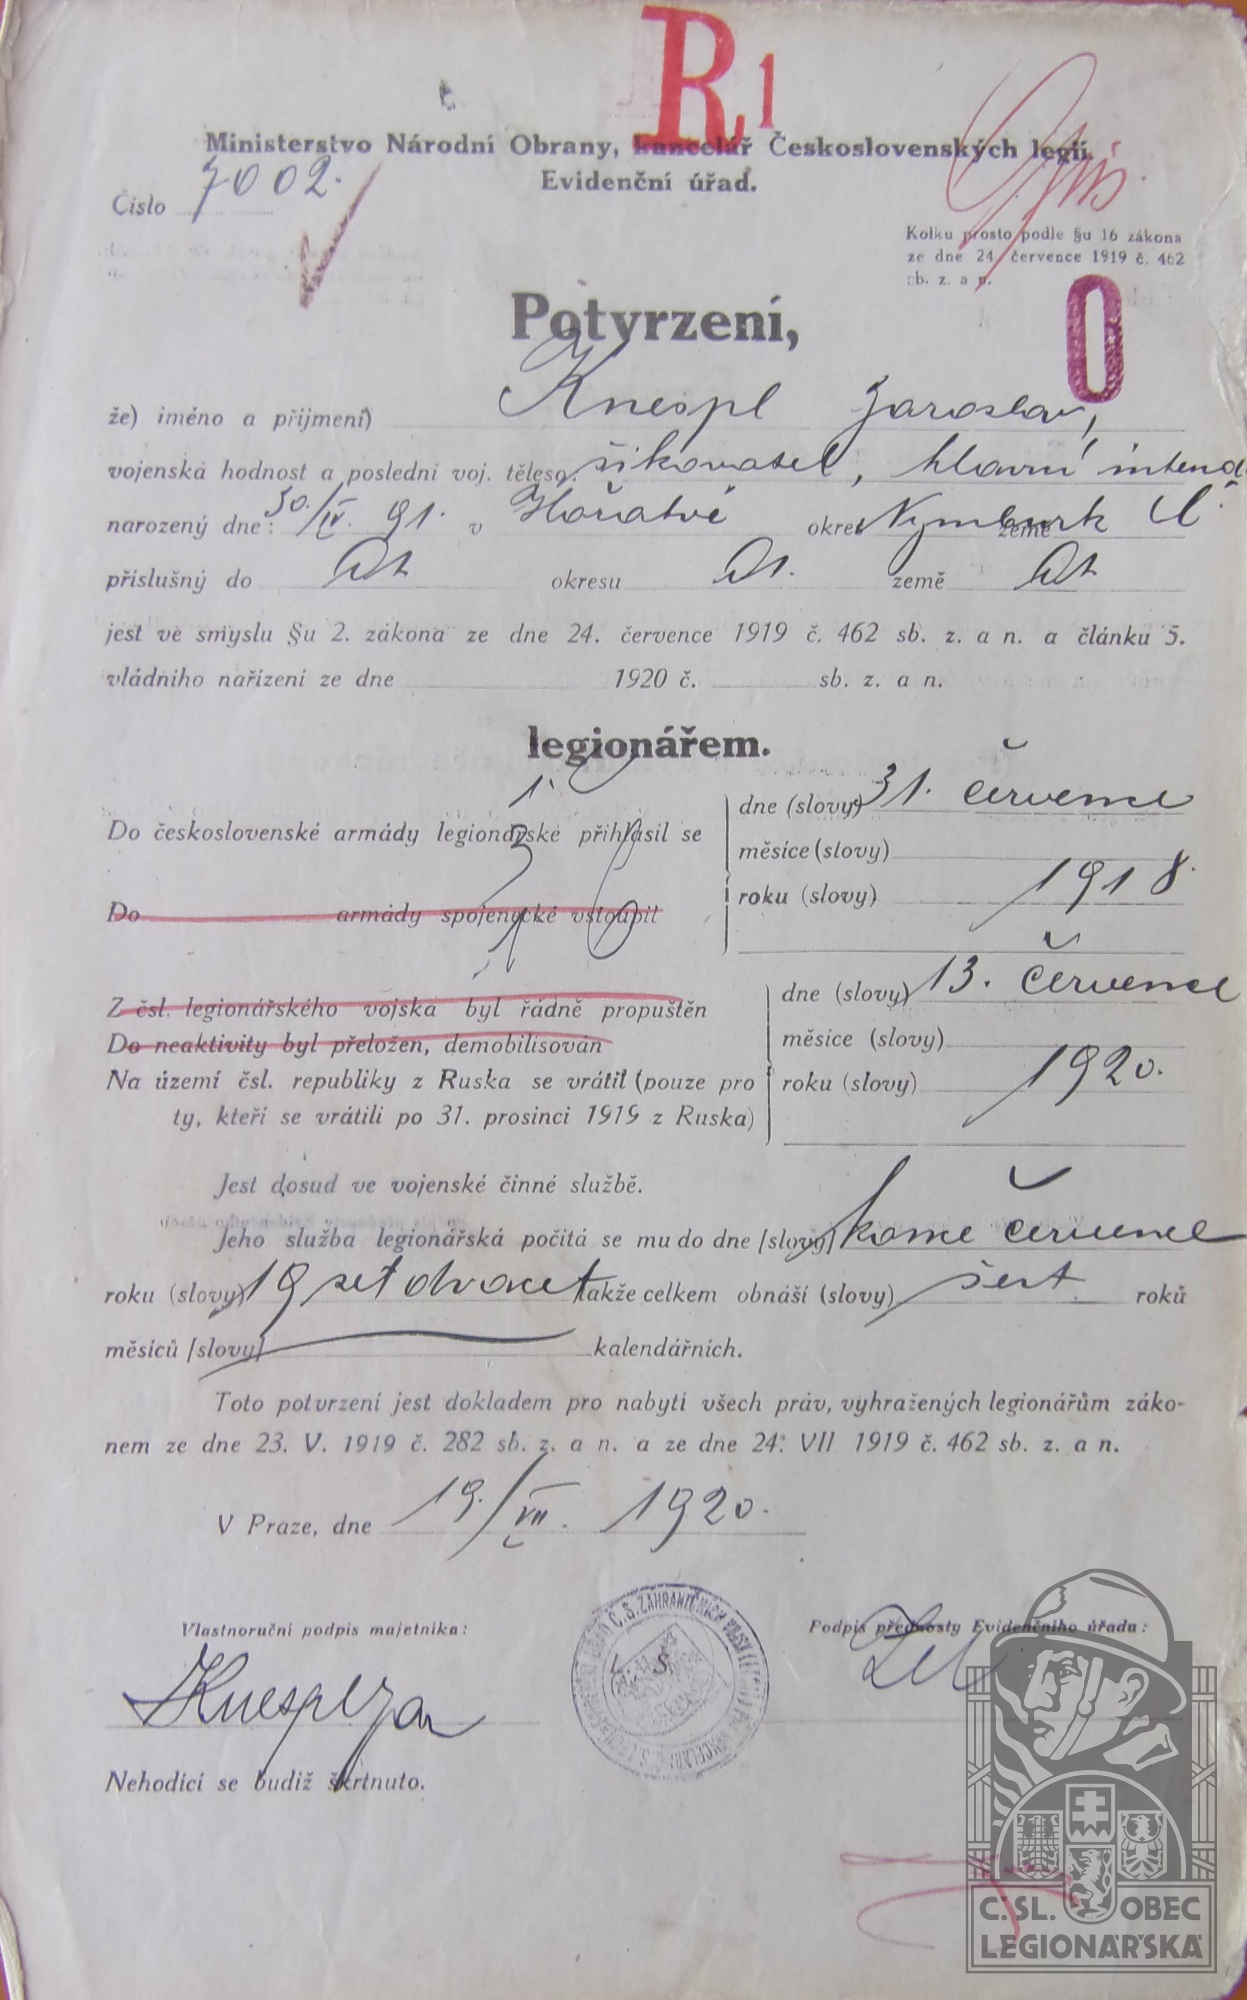 R1
Ministerstvo Národní Obrany, kancelář Československých legií.
Evidenční úřad.
Číslo 7002.
Kolku prosto podle §u 16 zákona
ze dne 24. července 1919 č. 462
sb. z. a n.
0
Potvrzení,
že) iméno a přijmení) Knespl Jaroslav,
vojenská hodnost a poslední voj. těleso: šikovatel, hlavní intend.
narozený dne: 30/IV. 91. v Hořatvě okres Nymburk země Č.
přislušný do dt okresu dt. země dt
jest ve smyslu §u 2. zákona ze dne 24. července 1919 č. 462 sb. z. a n. a článku 5.
vládního nařízení ze dne 1920 č. sb. z. a n.
legionářem.
Do československé armády legionářské přihlásil se
dne (slovy) 31. července
měsíce (slovy)
roku (slovy) 1918.
Do armády spojenecké vstoupil
Z čsl. legionářského vojska byl řádně propuštěn
Do neaktivity byl přeložen, demobilisován
Na území čsl. republiky z Ruska se vrátil (pouze pro
ty, kteří se vrátili po 31. prosinci 1919 z Ruska)
dne (slovy) 13. července
měsíce (slovy)
roku (slovy) 1920.
Jest dosud ve vojenské činné službě.
Jeho služba legionářská počítá se mu do dne [slovy] konce července
roku (slovy) 19 set dvacet takže celkem obnáší (slovy) šest roků
měsíců [slovy] kalendářních.
Toto potvrzení jest dokladem pro nabytí všech práv, vyhražených legionářům záko-
nem ze dne 23. V. 1919 č. 282 sb. z. a n. a ze dne 24. VII 1919 č. 462 sb. z. a n.
V Praze, dne 19./VII. 1920.
Vlastnoruční podpis majetníka:
Podpis přednosty Evidenčního úřadu:
Knespl Jar
Nehodící se budiž škrtnuto.
Č.SL. OBEC
LEGIONÁŘSKÁ